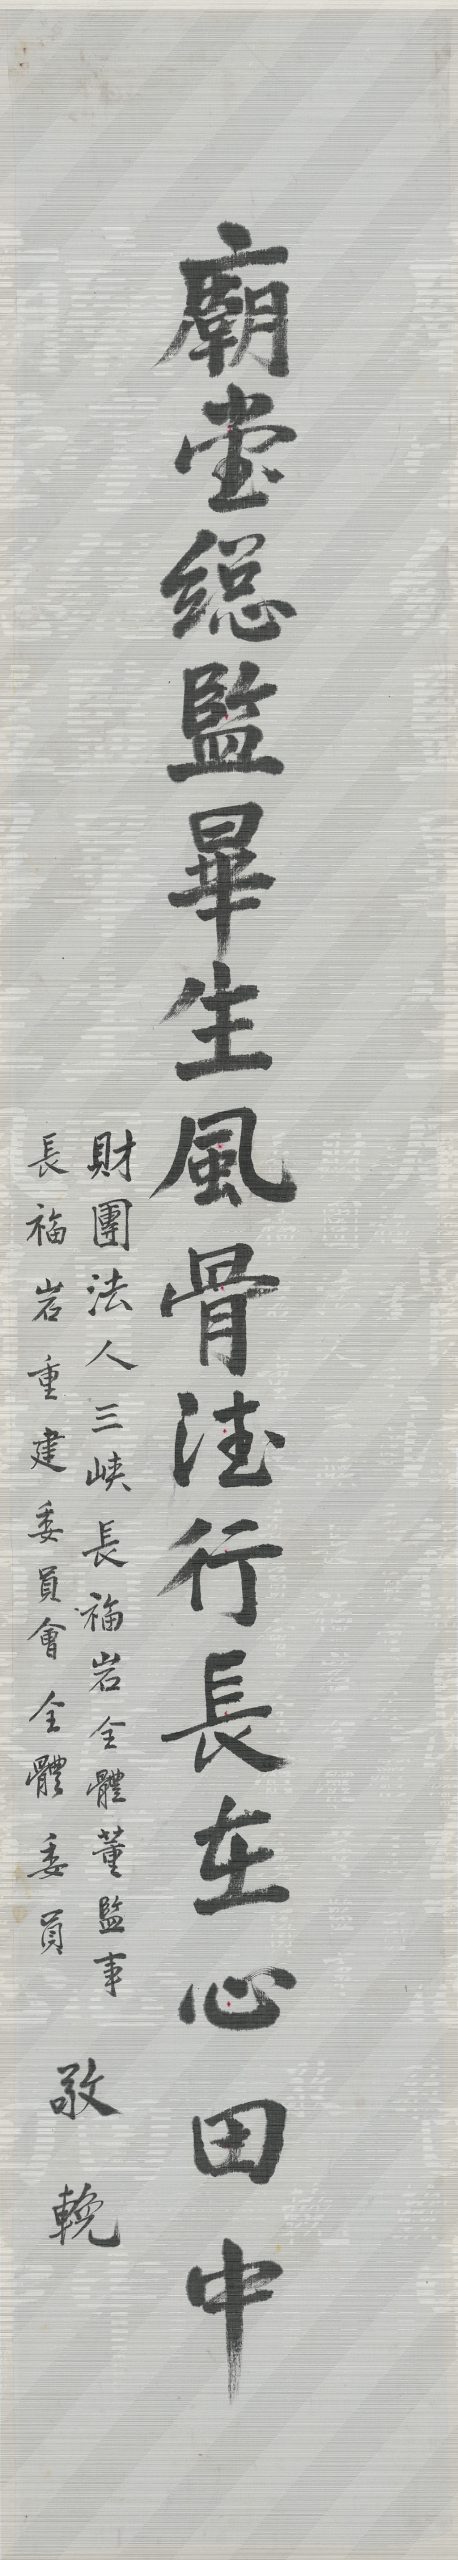 廟堂總監畢生風骨德行長在心田中
財團法人三峽長福岩全體董監事
長福岩重建委員會全體委員
敬輓